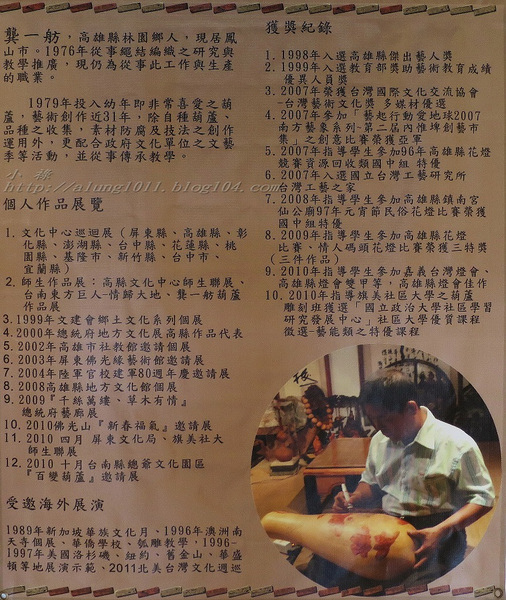 龔一舫，高雄縣林園鄉人，現居鳳
山市。1976年從事繩結編織之研究與
教學推廣，現仍為從事此工作與生產
的職業。
1979年投入幼年即非常喜愛之葫
蘆，藝術創作近31年，除自種葫蘆、
品種之收集，素材防腐及技法之創作
運用外，更配合政府文化單位之文藝
季等活動，並從事傳承教學。
小 綠
http://alung1011.blog104.com
個人作品展覽
1. 文化中心巡迴展（屏東縣、高雄縣、彰
化縣、澎湖縣、台中縣、花蓮縣、桃
園縣、基隆市、新竹縣、台中市、
宜蘭縣）
2. 師生作品展：高縣文化中心師生聯展、
台南東方巨人-情歸大地、龔一舫葫蘆
作品展
3.1999年文建會鄉土文化系列個展
4.2000年總統府地方文化展高縣作品代表
5.2002年高雄市社教館邀請個展
6.2003年屏東佛光緣藝術館邀請展
7.2004年陸軍官校建軍80週年慶邀請展
8.2008高雄縣地方文化館個展
9.2009『千絲萬縷、草木有情』
總統府藝廊展
10.2010佛光山『新春福氣』邀請展
11.2010 四月 屏東文化局、旗美社大
師生聯展
12.2010 十月台南縣總爺文化園區
『百變葫蘆』邀請展
受邀海外展演
1989年新加坡華族文化月、1996年澳洲南
天寺個展、華僑學校、瓠雕教學、1996-
1997年美國洛杉磯、紐約、舊金山、華盛
頓等地展演示範、2011北美台灣文化週巡
獲獎紀錄
1.1998年入選高雄縣傑出藝人獎
2.1999年入選教育部獎助藝術教育成績
優異人員獎
3.2007年榮獲台灣國際文化交流協會
-台灣藝術文化獎 多媒材優選
4.2007年參加「藝起行動愛地球2007
南方藝象系列-第二屆內惟埤創藝市
集」之創意比賽榮獲亞軍
5.2007年指導學生參加96年高雄縣花燈
競賽資源回收類國中組 特優
6.2007年入選國立台灣工藝研究所
台灣工藝之家
7.2008年指導學生參加高雄縣鎮南宮
仙公廟97年元宵節民俗花燈比賽榮獲
國中組特優
8.2009年指導學生參加高雄縣花燈
比賽、情人碼頭花燈比賽榮獲三特獎
(三件作品)
9.2010年指導學生參加嘉義台灣燈會、
高雄縣燈會雙甲等，高雄縣燈會佳作
10.2010年指導旗美社區大學之葫蘆
雕刻班獲選「國立政治大學社區學習
研究發展中心」社區大學優質課程
徵選-藝能類之特優課程